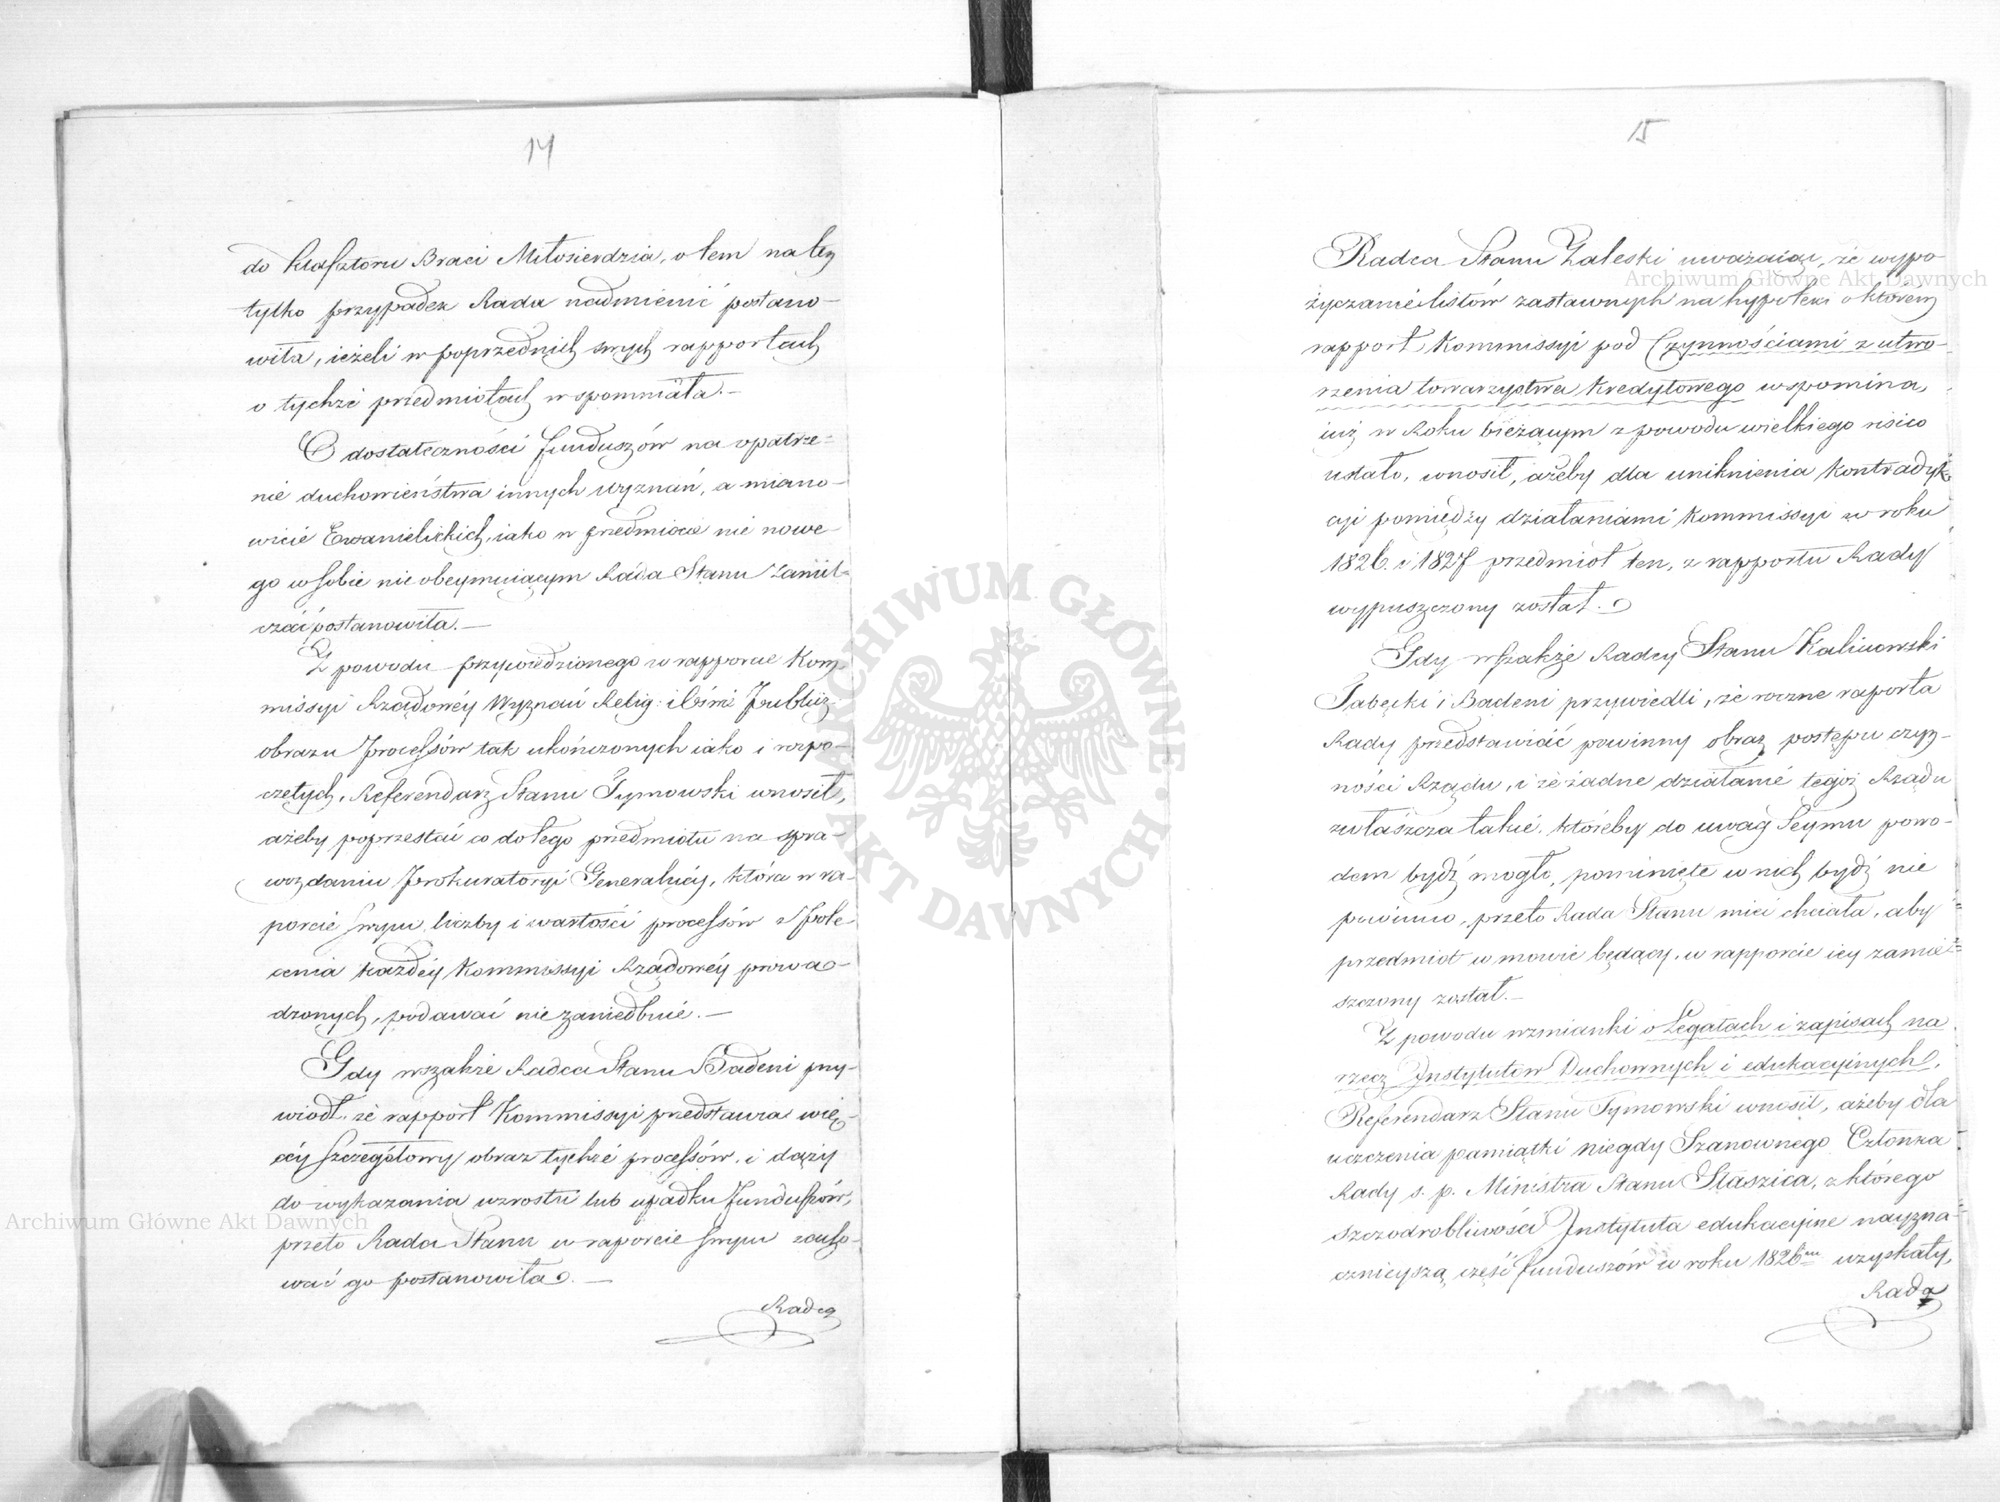 14
do klasztoru Braci Miłosierdzia, o tem na ten
tylko przypadek Rada nadmienić postano-
wiła, ieżeli w poprzednich swych rapportach
o tychże przedmiotach wspomniała.—
O dostateczności funduszów na opatrze-
nie duchowieństwa innych wyznań, a miano-
wicie Ewanielickich, iako w przedmiocie nic nowe-
go w sobie nie obeymuiącym Rada Stanu zamil-
czać postanowiła.—
Z powodu przywiedzionego w rapporcie Kom-
missyi Rządowéy Wyznań Relig: i Ośw: Publicz:
obrazu Processów tak ukończonych iako i rozpo-
czętych, Referendarz Stanu Tymowski wnosił,
ażeby poprzestać co do tego przedmiotu na spra-
wozdaniu Prokuratoryi Generalnéy, która w ra-
porcie swym liczby i wartości processów z pole-
cenia każdéy Kommissyi Rządowéy prowa-
dzonych, podawać nie zaniedbuie.—
Gdy wszakże Radca Stanu Badeni przy-
wiódł, że rapport Kommissyi przedstawia wię-
céy szczegółowy obraz tychże processów, i dąży
do wykazania wzrostu lub upadku funduszów,
przeto Rada Stanu w raporcie swym zacho-
wać go postanowiła.—
Radca
15
Radca Stanu Zaleski uważaiąc, że wypo-
życzanie listów zastawnych na hypoteki o którem
rapport Kommissyi pod Czynnościami z utwo-
rzenia towarzystwa Kredytowego wspomina,
iuż w Roku bieżącym z powodu wielkiego risico
ustało, wnosił, ażeby dla uniknienia Kontradyk-
cyi pomiędzy działaniami Kommissyi w roku
1826. i 1827 przedmiot ten, z rapportu Rady
wypuszczony został.
Gdy wszakże Radcy Stanu Kalinowski
Tabęcki i Badeni przywiedli, że roczne raporta
Rady przedstawiać powinny obraz postępu czyn-
ności Rządu, i że żadne działanie tegoż Rządu
zwłaszcza takie, któreby do uwag Seymu powo-
dem bydź mogło, pominięte w nich bydź nie
powinno, przeto Rada Stanu mieć chciała, aby
przedmiot w mowie będący, w rapporcie iey zamie-
szczony został.—
Z powodu wzmianki o Legatach i zapisach na
rzecz Instytutów Duchownych i edukacyinych,
Referendarz Stanu Tymowski wnosił, ażeby dla
uczczenia pamiątki niegdy Szanownego Członka
Rady ś. p. Ministra Stanu Staszica, z którego
szczodrobliwości Instytuta edukacyine nayzna-
cznieyszą część funduszów w roku 1826m uzyskały,
Rada
Archiwum Główne Akt Dawnych
Archiwum Główne Akt Dawnych
ARCHIWUM GŁÓWNE AKT DAWNYCH